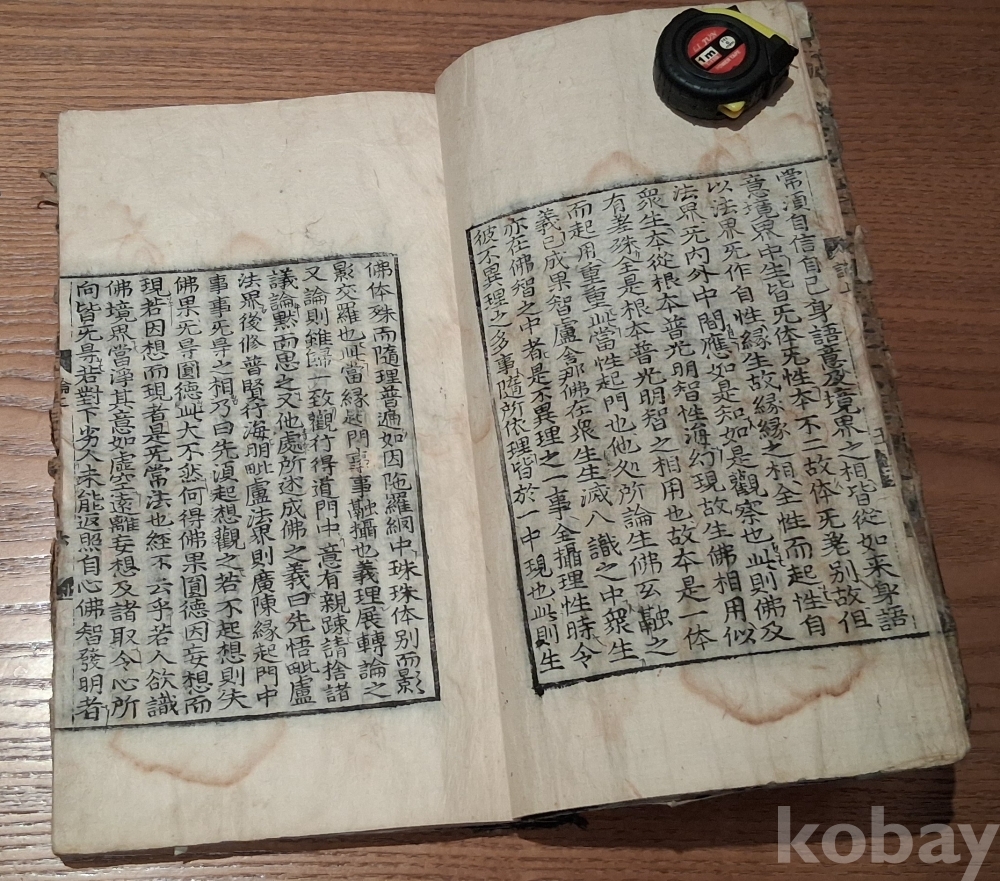 常須自信自己身語意及境界之相皆從如来身語
意境界中生皆无体无性本不二故体无差別故但
以法界无作自性縁生故縁縁之相全性而起性自
法界无內外中間應如是知如是觀察也此則佛及
衆生本從根本普光明智性海幻現故生佛相用似
有差殊全是根本普光明智之相用也故本是一体
而起用重重此當性起門也他処所論生佛互融之
義已成果智盧舍那佛在衆生生滅八識之中衆生
亦在佛智之中者是不異理之一事全攝理性時令
彼不異理之多事隨所依理皆於一中現也此則生
佛体殊而隨理普遍如因陁羅網中珠珠体別而影
影交羅也此當縁起門事事融攝也義理展轉論之
又論則雖歸一致觀行得道門中意有親踈請捨諸
議論默而思之又他處所述成佛之義曰先悟毗盧
法界後修普賢行海明毗盧法界則廣陳縁起門中
事事无㝵之相乃曰先須起想觀之若不起想則失
佛果无㝵圓德此大不然何得佛果圓德因妄想而
現若因想而現者是无常法也經不云乎若人欲識
佛境界當淨其意如虛空遠離妄想及諸取令心所
向皆无㝵若對下劣人未能返照自心佛智發明者
論
1m
kobay